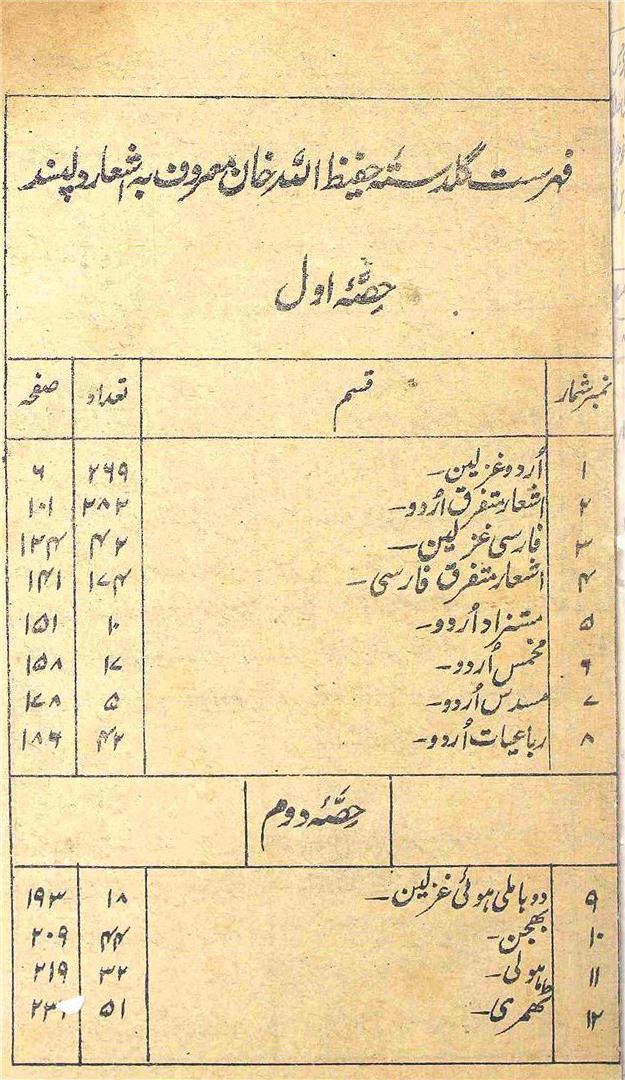 فہرست گلدستہ حفیظ اللہ خان معروف بہ اشعار دلپسند
حصّۂ اول
نمبر شمار قسم تعداد صفحہ
۱ اُردو غزلین۔ ۲۶۹ ۶
۲ اشعار متفرق اُردو۔ ۲۸۲ ۱۰۱
۳ فارسی غزلین۔ ۴۲ ۱۲۴
۴ اشعار متفرق فارسی۔ ۱۷۴ ۱۴۱
۵ مستزاد اُردو۔ ۱۰ ۱۵۱
۶ مخمس اُردو۔ ۱۷ ۱۵۸
۷ مسدس اُردو۔ ۵ ۱۷۸
۸ رباعیات اُردو۔ ۴۲ ۱۸۶
حصّۂ دوم
۹ دوہا ملی ہوئی غزلین۔ ۱۸ ۱۹۳
۱۰ بھجن۔ ۴۴ ۲۰۹
۱۱ ہولی۔ ۳۲ ۲۱۹
۱۲ ٹھمری۔ ۵۱